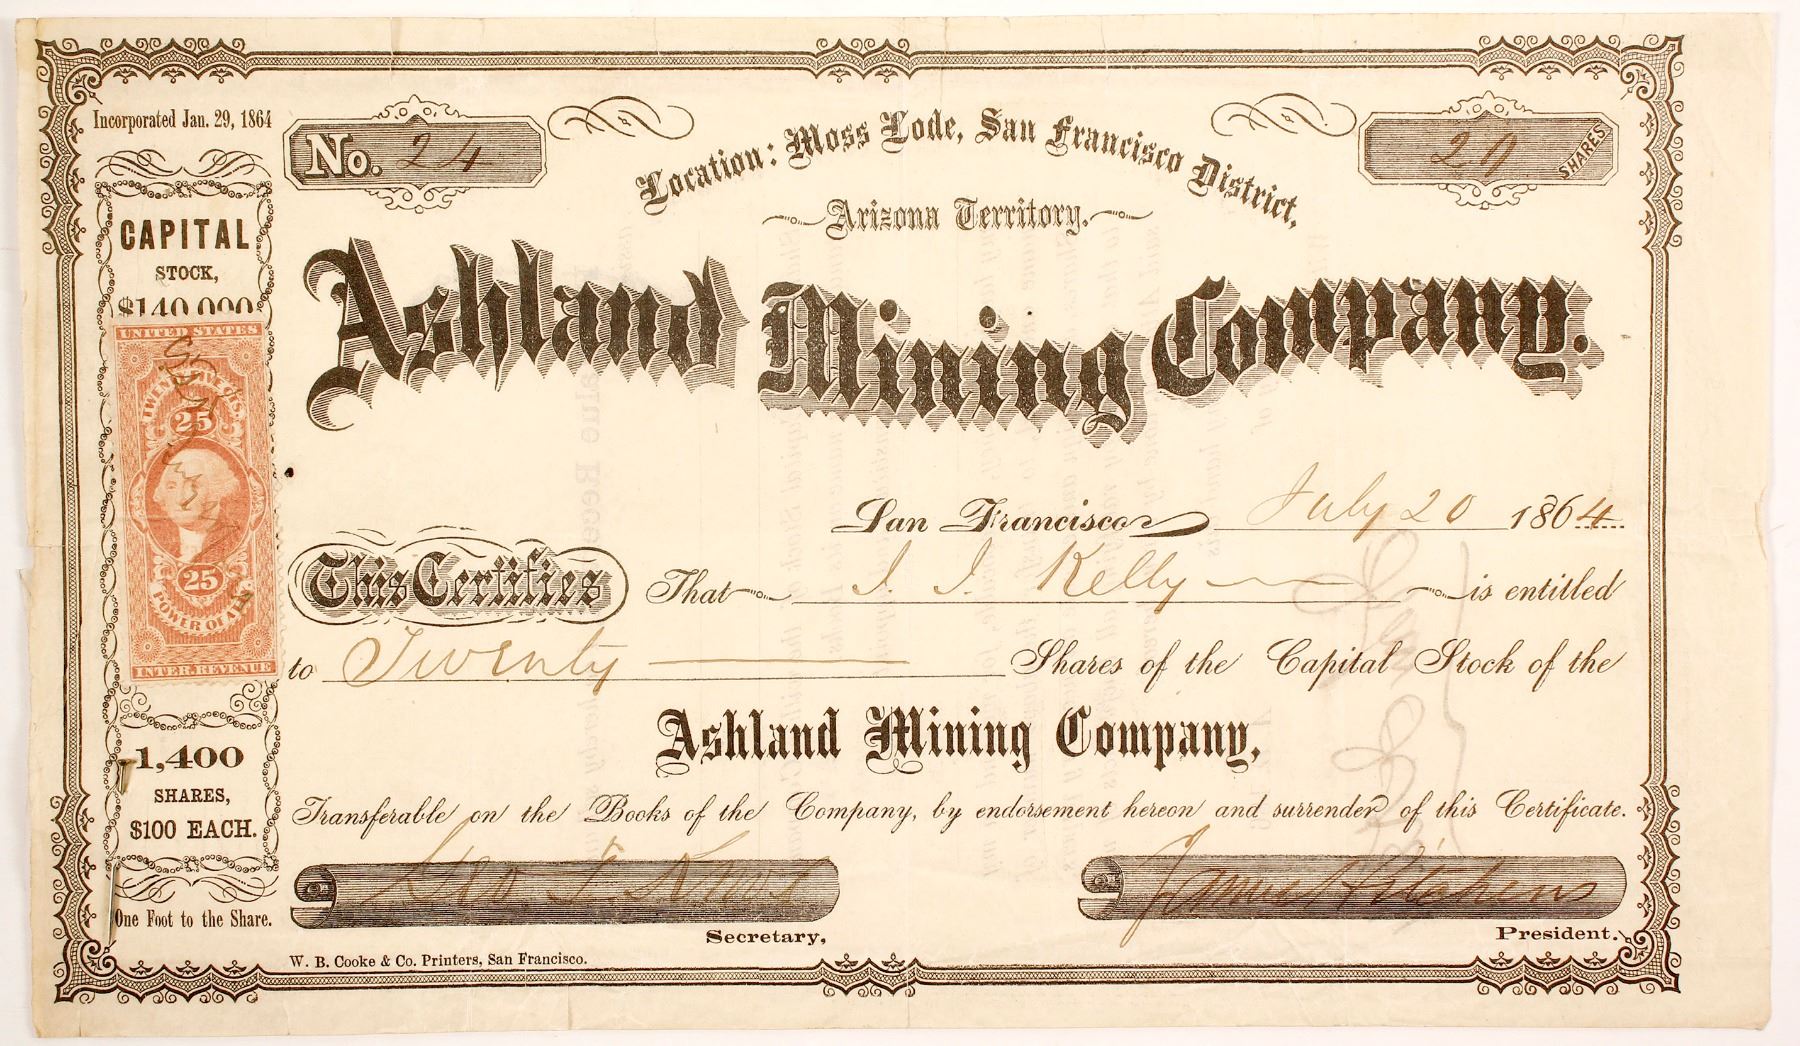 Incorporated Jan. 29, 1864
No. 24
Location: Moss Lode, San Francisco District,
Arizona Territory.
20 SHARES
CAPITAL
STOCK,
$140,000
Ashland Mining Company.
UNITED STATES
TWENTY FIVE CTS.
25
25
POWER OF AT
INTER. REVENUE
1,400
SHARES,
$100 EACH.
One Foot to the Share.
San Francisco July 20 1864
This Certifies That I. I. Kelly is entitled
to Twenty Shares of the Capital Stock of the
Ashland Mining Company,
Transferable on the Books of the Company, by endorsement hereon and surrender of this Certificate.
Geo. F.
Samuel
Secretary,
President.
W. B. Cooke & Co. Printers, San Francisco.